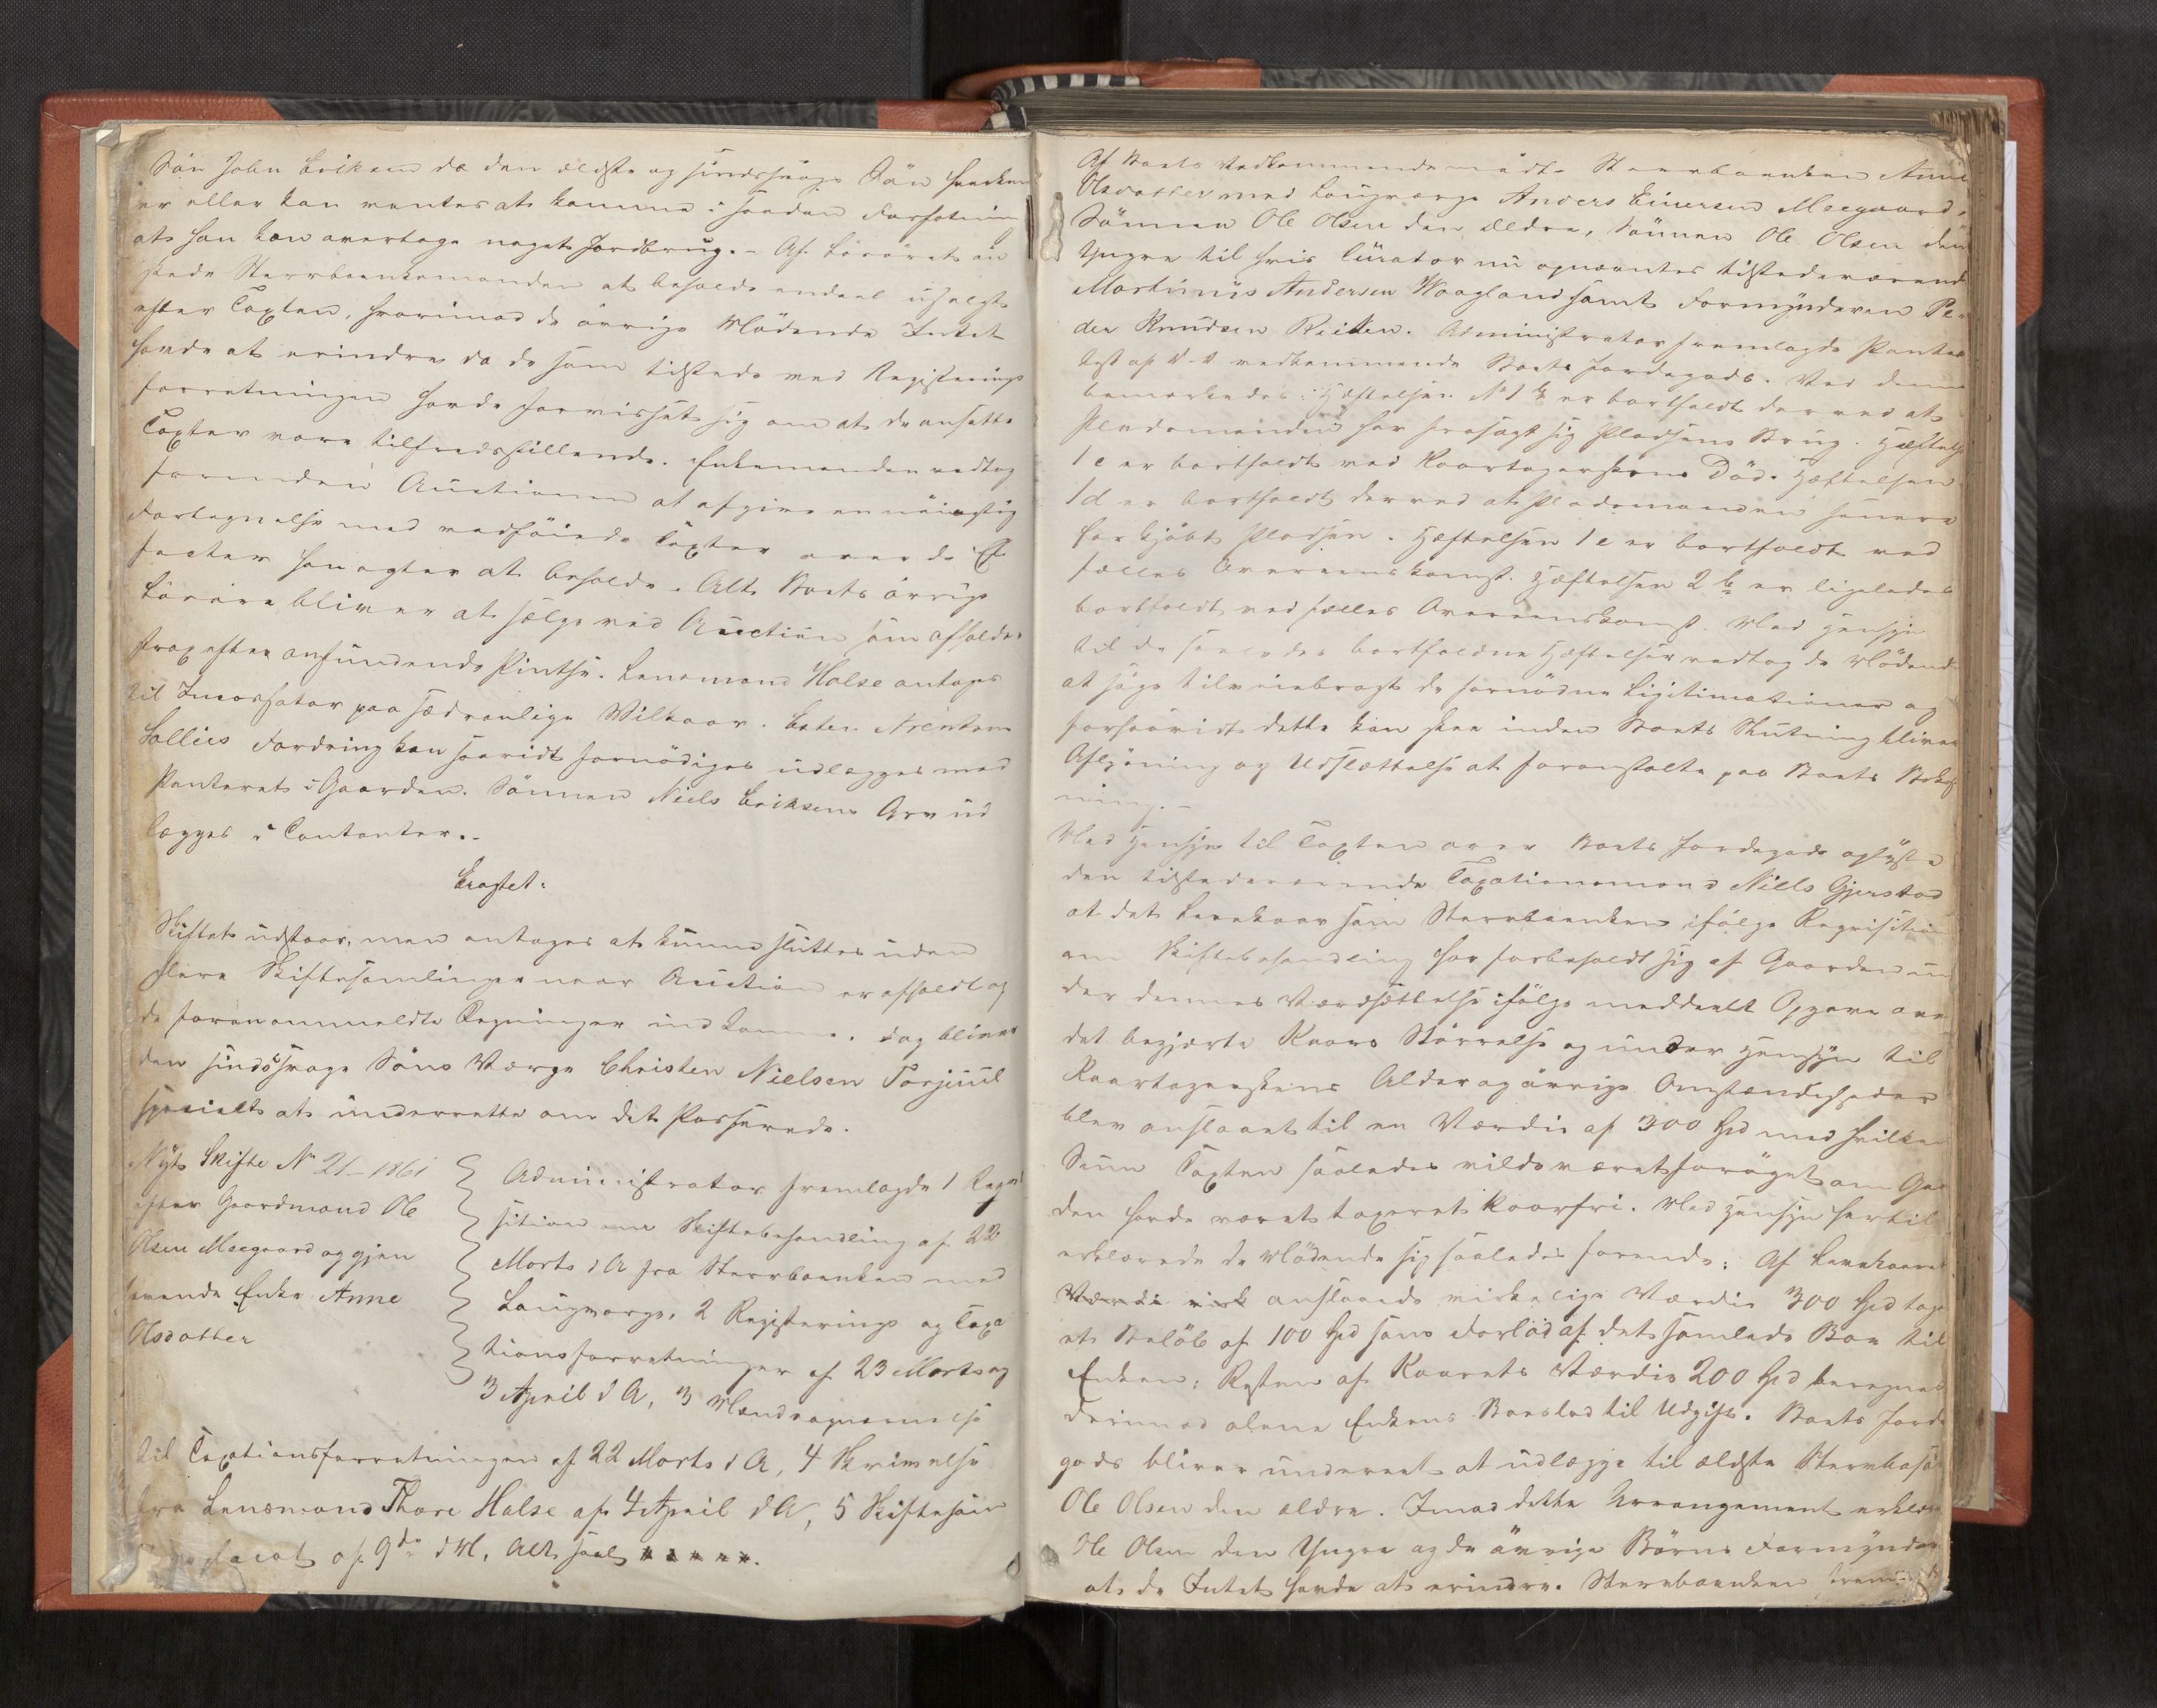 Søn John Eriksen da den ældste og sindssvage Søn hverken
er eller kan ventes at komme i saadan Forfatning
at han kan overtage noget Jordbrug. – Af Løsøret øn
skede Sterrboenkemanden at beholde endeel usolgt
efter Taxten, hvorimod de øvrige Mødende Intet
havde at erindre da de som tilstede ved Registrerings
forretningen havde forvisset sig om at de ansatte
Taxter vare tilfredsstillende. Enkemanden vedtog
forinden Auctionen at afgive en nøiagtig
Fortegnelse med vedføiede Taxter over de Ef
fecter han agter at beholde. Alt Boets øvrige
Løsøre bliver at sælge ved Auction som afholdes
strax efter anstundende Pintse. Lensmand Halse antages
til Incassator paa sædvanlige Vilkaar. Enken
Sollies Fordring kan saavidt fornødiges udlægges med
Panteret i Gaarden. Sønnen Niels Eriksens Arv ud
lægges i Contanter. –
Eragtet:
Skiftet udstaar, men antages at kunne sluttes uden
flere Skiftesamlinger naar Auction er afholdt og
de foranommeldte Regninger indkomme. Dog bliver
den sindssvage Søns Værge Christen Nielsen Torjuul
specielt at underrette om det Passerede.
Nyt Skifte No 21 – 1861
efter Gaardmand Ole
Olsen Meegaard og gjen
levende Enke Anne
Olsdatter
Administrator fremlagde 1 Reqvi
sition om Skiftebehandling af 22
Marts d A fra Sterrboenken med
Laugværge, 2 Registrerings og Taxa
tionsforretninger af 23 Marts og
3 April d A, 3 Mændsopnævnelse
til Taxationsforretningen af 22 Marts d A, 4 Skrivelse
fra Lensmand Thore Halse af 4 April d A, 5 Skiftesam
placat af 9de d M, Alt saal
Af Boets Vedkommende mødte Sterrboenken Anne
Olsdatter med Laugværge Anders Einersen Meegaard,
Sønnen Ole Olsen den Ældre, Sønnen Ole Olsen den
Yngre til hvis Curator nu opnævntes tilstedeværende
Martinus Andersen Waagland samt Formynderen Pe
der Knudsen Reiten. Administrator fremlagde Pante
test af D. D. vedkommende Boets Jordegods. Ved denne
bemærkedes: Hæftelsen No 1 b er bortfaldt derved at
Pladsmanden har frasagt sig Pladsens Brug. Hæftelse
1 c er bortfaldt ved Kaartagerskens Død. Hæftelsen
1 d er bortfaldt derved at Pladsmanden senere
har kjøbt Pladsen. Hæftelsen 1 e er bortfaldt ved
fælles Overeenskomst. Hæftelsen 2 b er ligeledes
bortfaldt ved fælles Overeenskomst. Med Hensyn
til de saaledes bortfaldne Hæftelser vedtog de Mødende
at søge tilveiebragt de fornødne Legitimationer og
forsaavidt dette kan skee inden Boets Slutning bliver
Aflysning og Udslettelse at foranstalte paa Boets Bekost
ning. –
Med Hensyn til Taxten over Boets Jordegods oplyste
den tilstedeværende Taxationsmand Niels Gjerstad
at det Levekaar som Sterrboenken ifølge Reqvisition
om Skiftebehandling har forbeholdt sig af Gaarden un
der dennes Værdsættelse ifølge meddeelt Opgave over
det begjærte Kaars Størrelse og under Hensyn til
Kaartagerskens Alder og øvrige Omstændigheder
blev anslaaet til en Værdie af 300 Spd med hvilken
Sum Taxten saaledes vilde været forøget om Gaar
den havde været taxeret kaarfri. Med Hensyn hertil
erklærede de Mødende sig saaledes forende: Af Levekaarets
Værdi virk anslaaede virkelige Værdie 300 Spd tages
et Beløb af 100 Spd som Forlod af det samlede Boe til
Enken; Resten af Kaarets Værdie 200 Spd beregnes
derimod alene Enkens Boeslod til Udgift. Boets Jorde
gods bliver underet at udlægge til ældste Sterrbosøn
Ole Olsen den ældre. Imod dette Arrangement erklærede
Ole Olsen den Yngre og de øvrige Børns Formynder
at de Intet havde at erindre. Sterrboenken